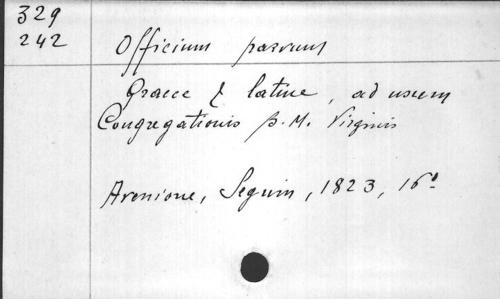 329
242
Officium parvum
Graece & latine, ad usum
Congregationis B. M. Virginis
Avenione, Seguin, 1823, 16°